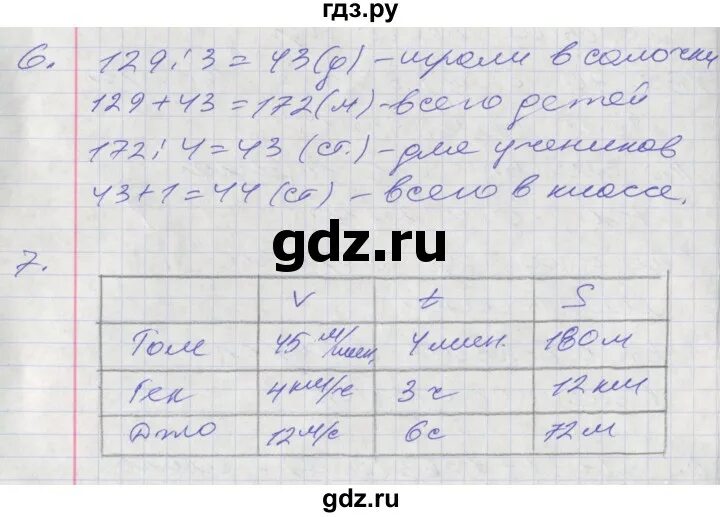 гдз.ру
6. 129 : 3 = 43 (д) - играли в салочки
129 + 43 = 172 (м) - всего детей
172 : 4 = 43 (ст.) - для учеников
43 + 1 = 44 (ст) - всего в классе.
gdz.ru
7.
V t S
Том 45 м/мин. 4 мин. 180 м
Гек 4 км/ч 3 ч 12 км
Джо 12 м/с 6 с 72 м
gdz.ru